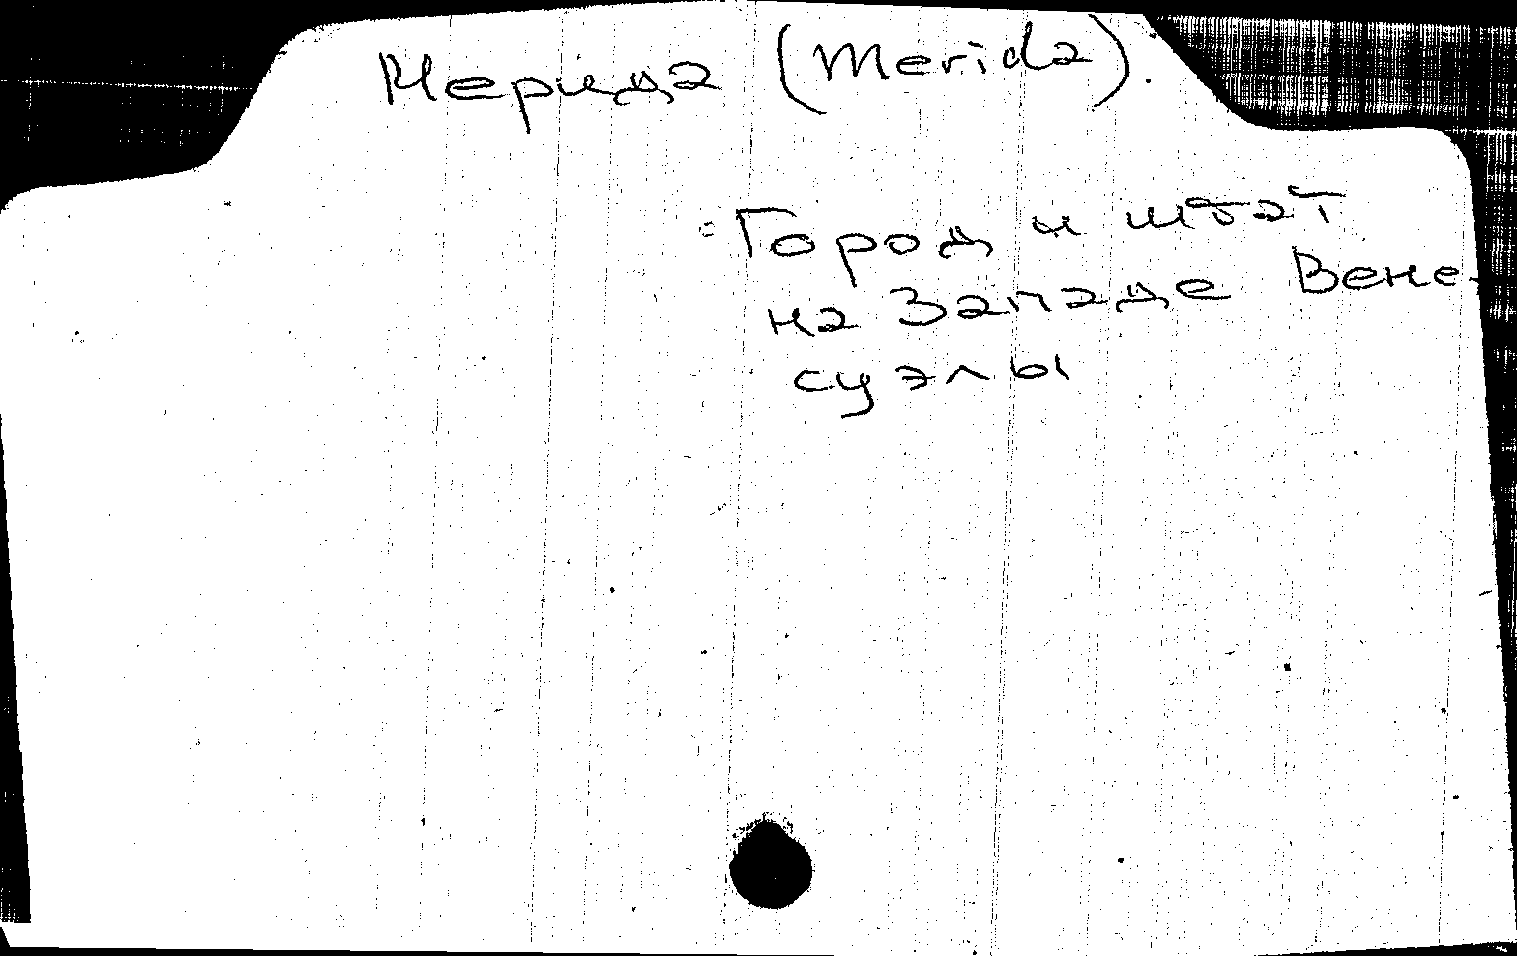 Мерида (Merida).
Город и штат
на Западе Вене-
суэлы